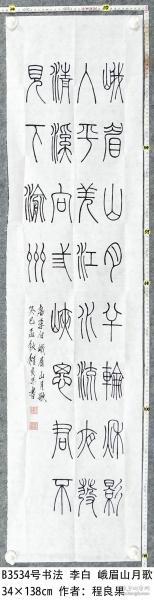 峨眉山月半輪秋影
入平羌江水流夜發
清溪向弎峽思君不
見下渝州
唐李白峨眉山月歌
癸巳孟秋程良果書
B3534号书法 李白 峨眉山月歌
34×138cm 作者：程良果